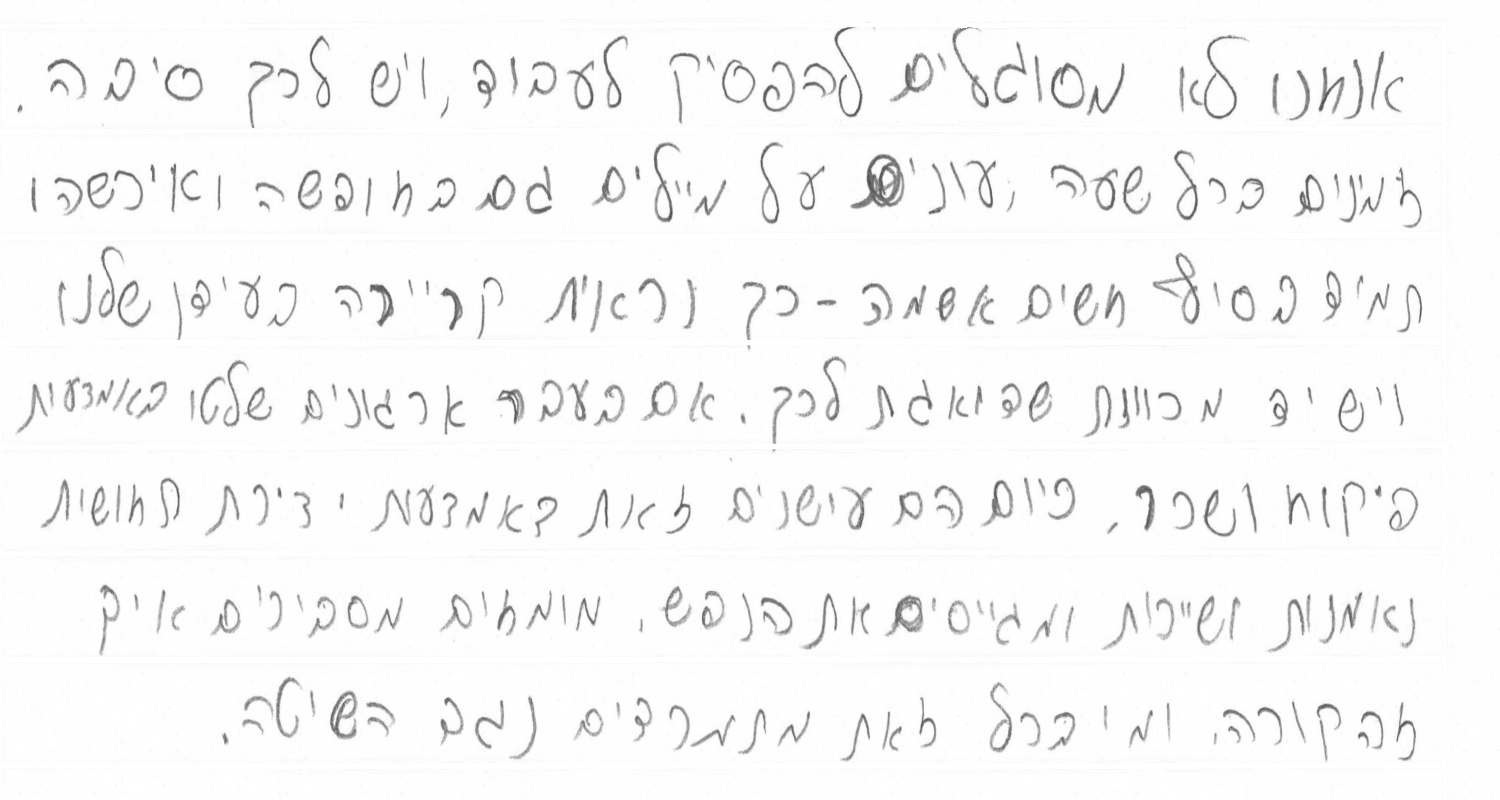 אנחנו לא מסוגלים להפסיק לעבוד, ויש לכך סיבה.
זמינים בכל שעה, עונים על מיילים גם בחופשה ואיכשהו
תמיד בסוף חשים אשמה - כך נראית קריירה בעידן שלנו
ויש יד מכוונת שדואגת לכך. אם בעבר ארגונים שלטו באמצעות
פיקוח ושכר, כיום הם עושים זאת באמצעות יצירת תחושית
נאמנות ושייכות ומגייסים את הנפש. מומחים מסבירים איך
זה קורה, ומי בכל זאת מתמרדים נגד השיטה.